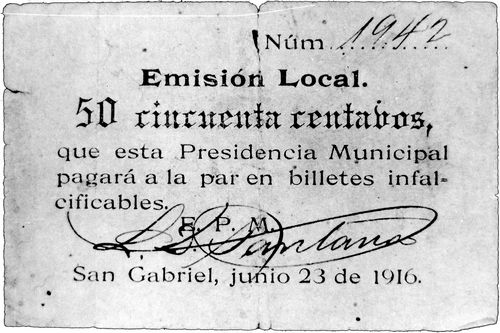 Núm. 1942
Emisión Local.
50 cincuenta centavos,
que esta Presidencia Municipal
pagará a la par en billetes infal-
cificables.
E. P. M.
L. S. Santana
San Gabriel, junio 23 de 1916.